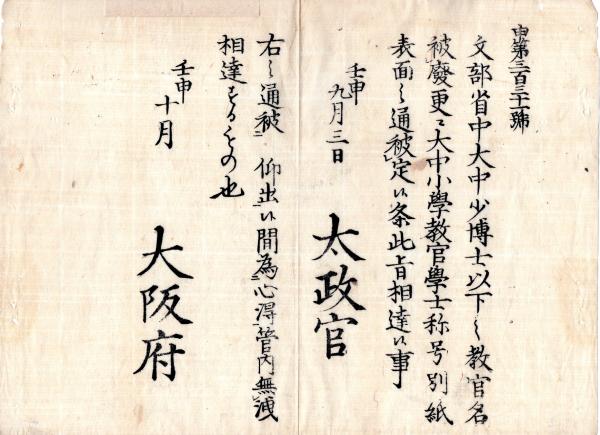 申第三百三十一號
文部省中大中少博士以下之教官名
被廢更ニ大中小學教官學士称号別紙
表面之通被定候条此旨相達候事
壬申
九月三日
太政官
右之通被 仰出候間為心得管内無洩
相達するもの也
壬申
十月
大阪府